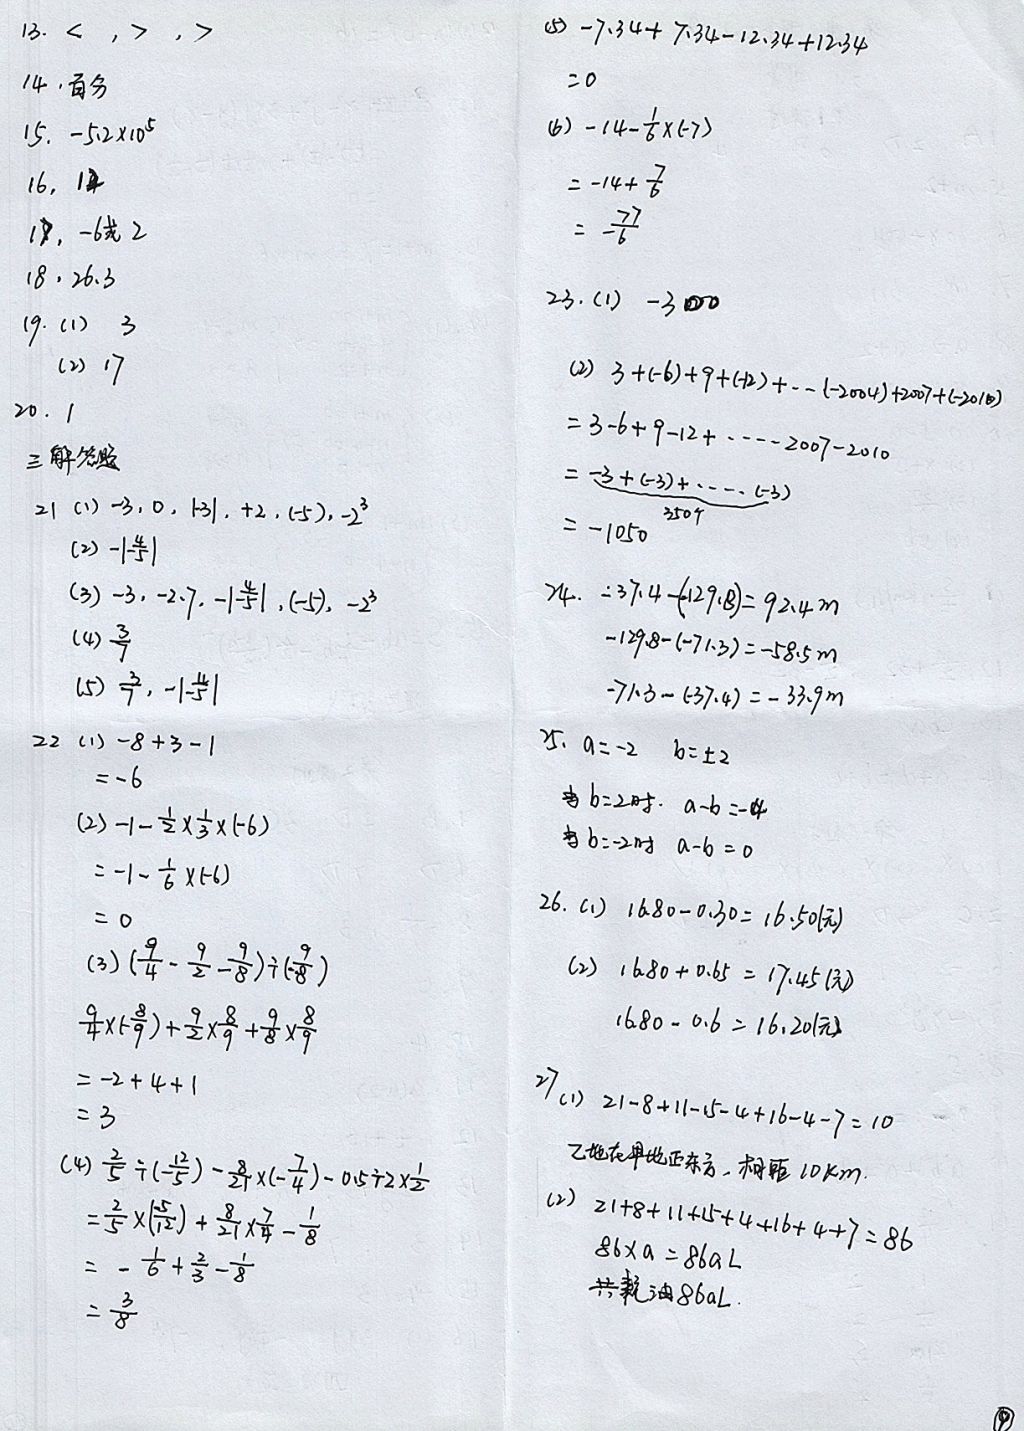 13. < , > , >
14. 百分
15. -5.2×10⁵
16. 12
17. -6或2
18. 26.3
19. (1) 3
(2) 17
20. 1
三解答题
21 (1) -3, 0, |-3|, +2, (-5), -2³
(2) -|-4/5|
(3) -3, -2.7, -|-4/5|, (-5), -2³
(4) 3/7
(5) 3/7, -|-4/5|
22 (1) -8+3-1
=-6
(2) -1-1/2×1/3×(-6)
=-1-1/6×(-6)
=0
(3) (9/4-9/2-9/8)÷(-9/8)
9/4×(-8/9)+9/2×8/9+9/8×8/9
=-2+4+1
=3
(4) 2/5÷(-12/5)-8/21×(-7/4)-0.5÷2×1/2
=2/5×(-5/12)+8/21×7/4-1/8
=-1/6+2/3-1/8
=3/8
(5) -7.34+7.34-12.34+12.34
=0
(6) -14-1/6×(-7)
=-14+7/6
=-77/6
23. (1) -3000
(2) 3+(-6)+9+(-12)+...(-2004)+2007+(-2010)
=3-6+9-12+.....2007-2010
=-3+(-3)+.....(-3)
350个
=-1050
24. -37.4-(-129.8)=92.4m
-129.8-(-71.3)=-58.5m
-71.3-(-37.4)=-33.9m
25. a=-2 b=±2
当b=2时. a-b=-4
当b=-2时 a-b=0
26. (1) 16.80-0.30=16.50(元)
(2) 16.80+0.65=17.45(元)
16.80-0.6=16.20(元)
27 (1) 21-8+11-15-4+16-4-7=10
乙地在甲地正东方, 相距10km.
(2) 21+8+11+15+4+16+4+7=86
86×a=86aL
共耗油86aL.
9